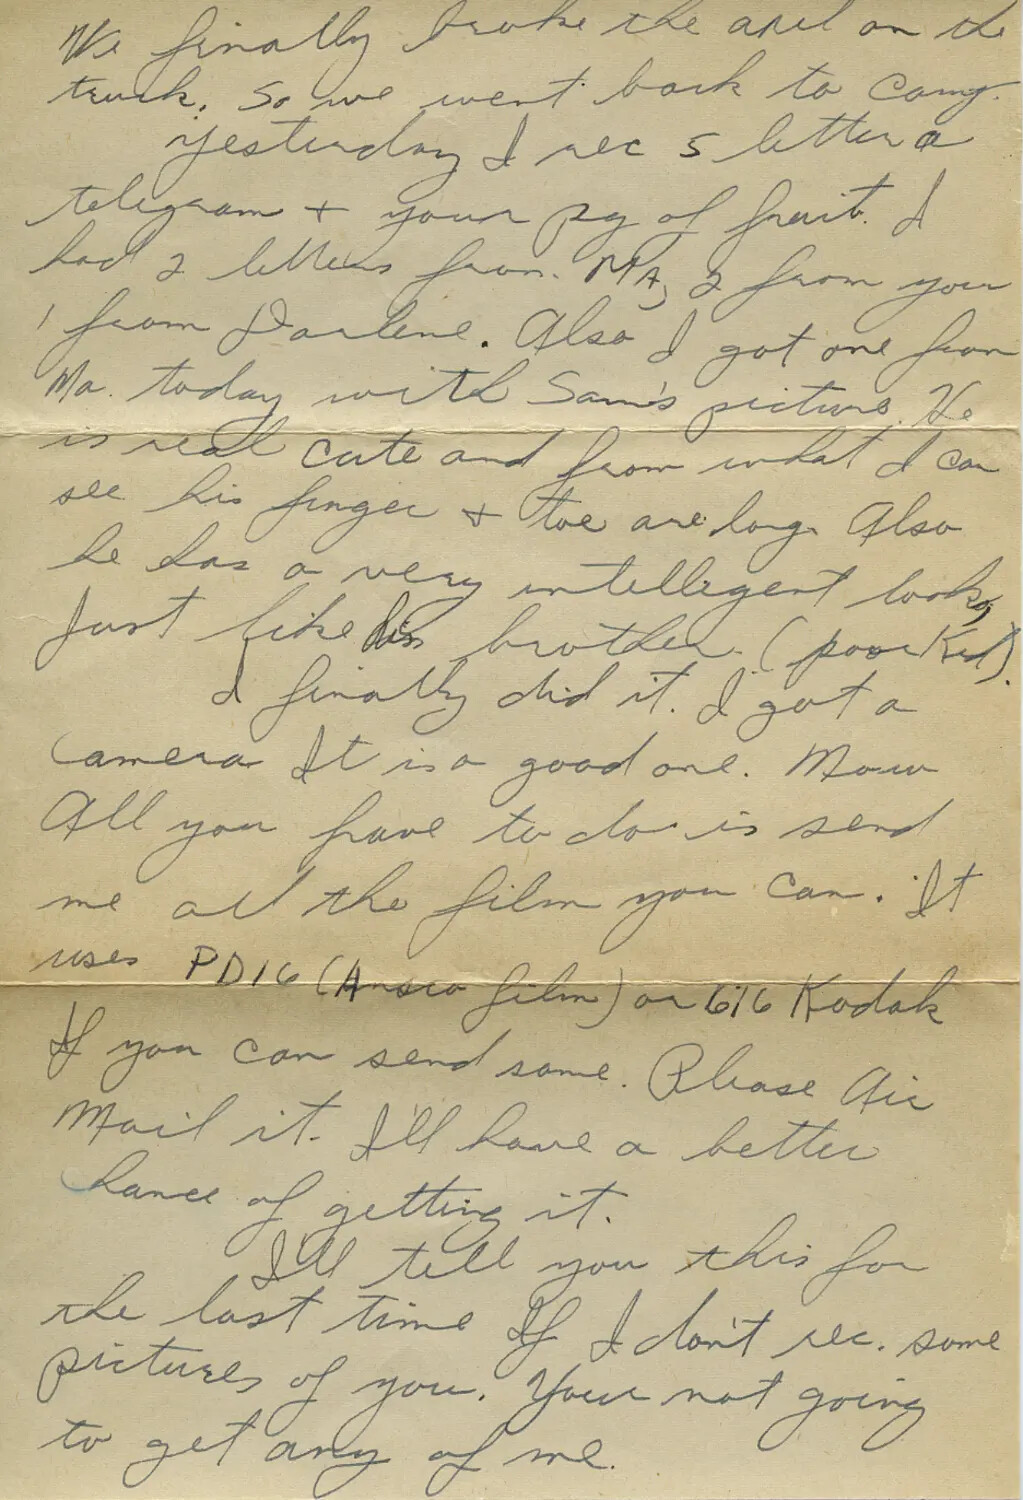 We finally broke the axel on the
truck. So we went back to camp.
Yesterday I rec 5 letter a
telegram + your pg of fruit. I
had 2 letters from. MA, 2 from you
1 from Darlene. Also I got one from
Ma. today with Sam's picture. He
is real cute and from what I can
see his finger + toe are long. Also
he has a very intellegent look,
Just like his brother. (poor Kid).
I finally did it. I got a
Camera It is a good one. Now
All you have to do is send
me all the film you can. It
uses PD16 (Ansco film) or 616 Kodak
If you can send some. Please Air
Mail it. I'll have a better
chance of getting it.
I'll tell you this for
the last time If I don't rec. some
pictures of you. Your not going
to get any of me.